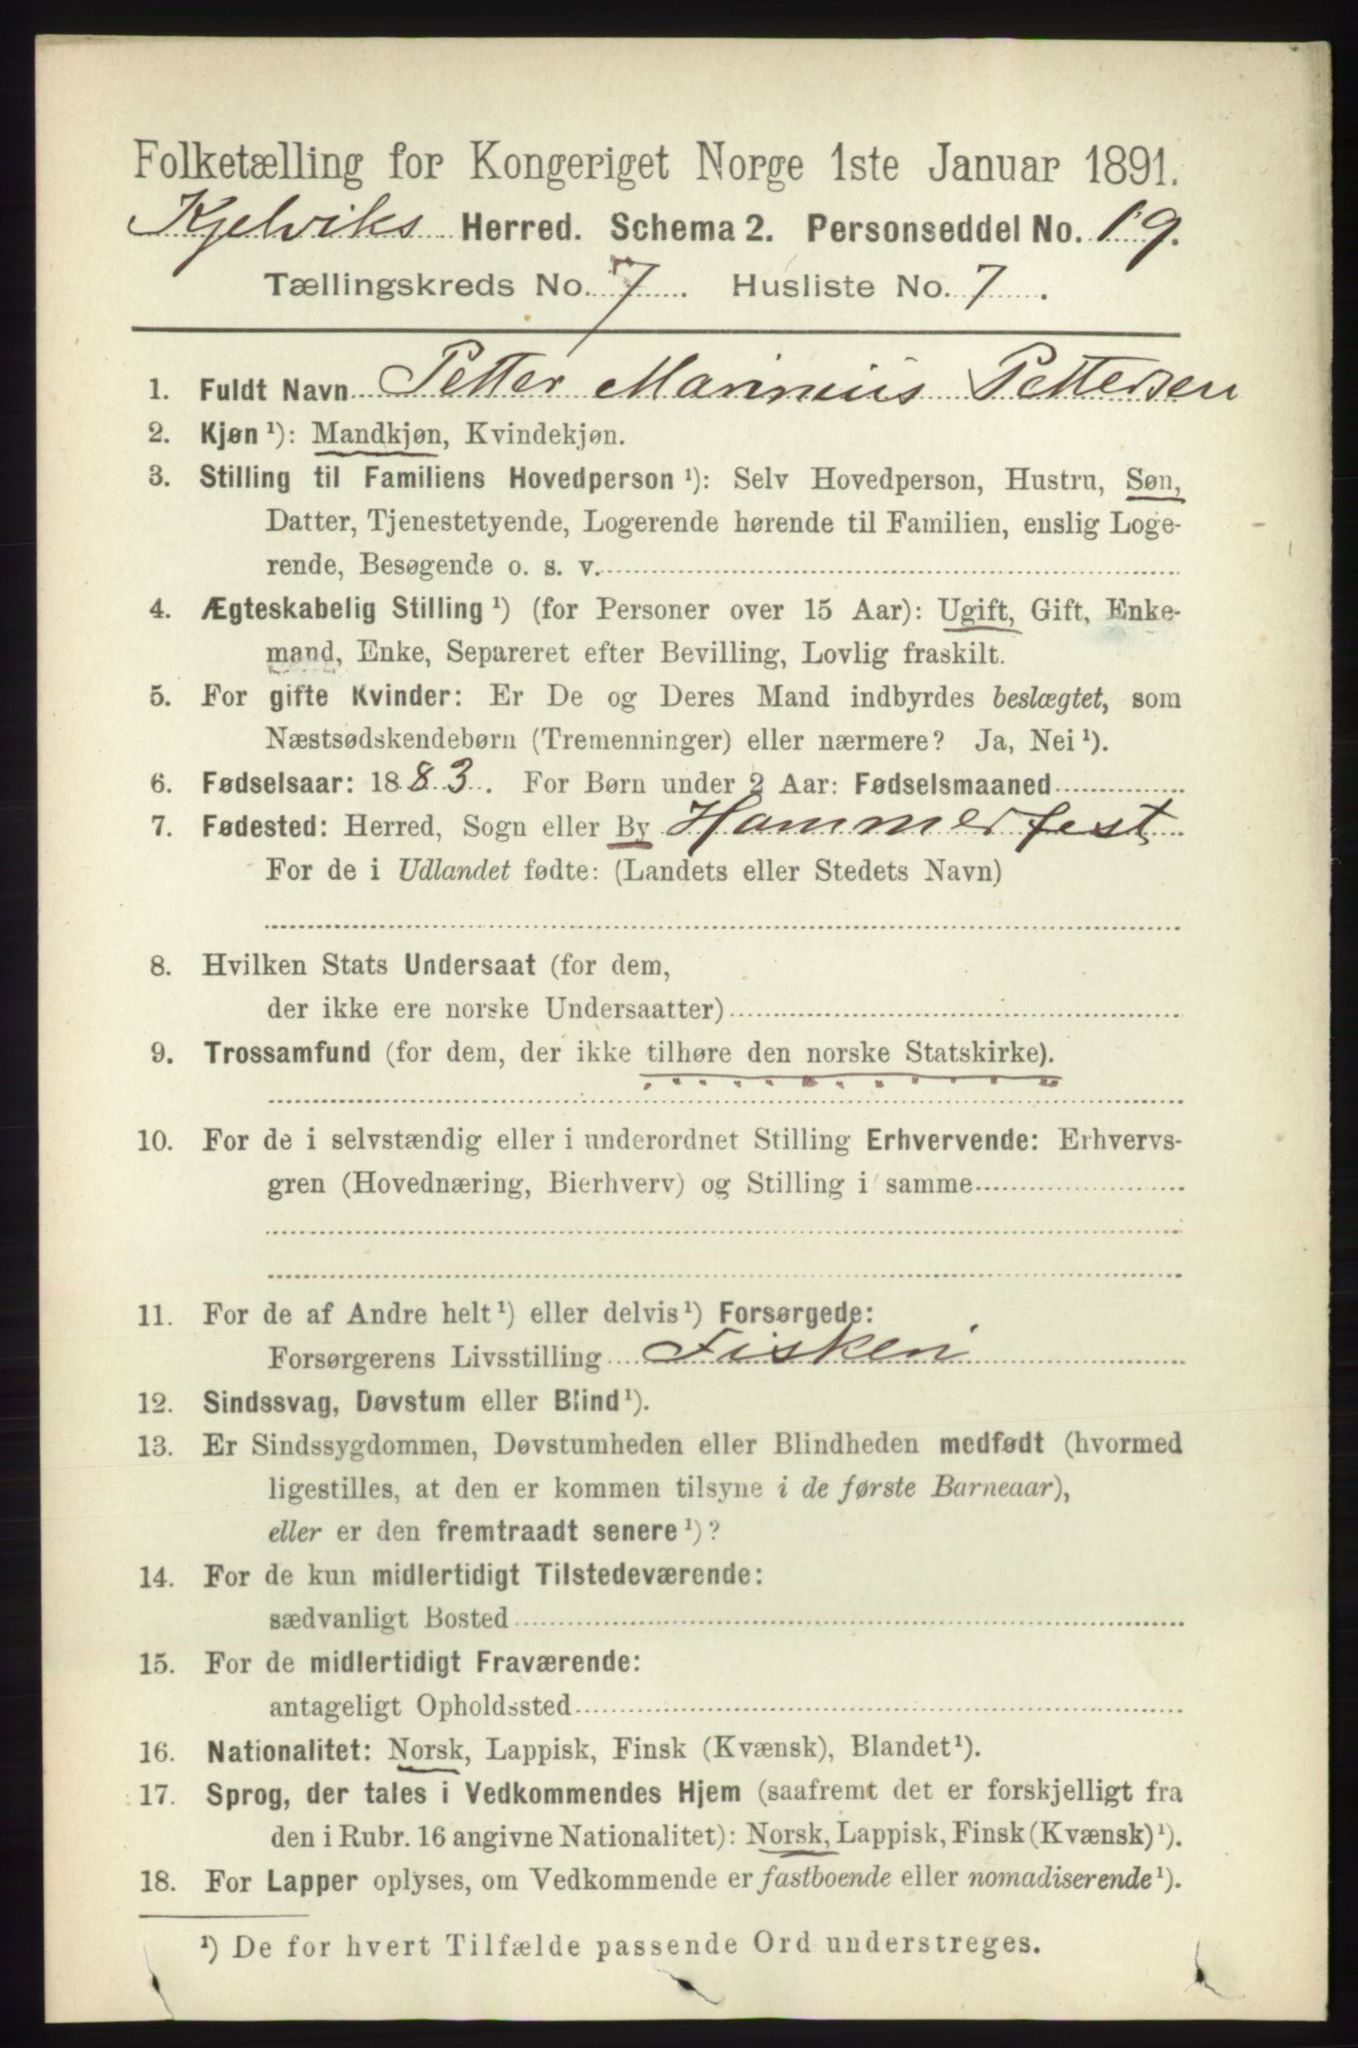 Folketælling for Kongeriget Norge 1ste Januar 1891.
Kjelviks Herred. Schema 2. Personseddel No. 19.
Tællingskreds No. 7. Husliste No. 7.
1. Fuldt Navn Petter Marinius Pettersen
2. Kjøn ¹): Mandkjøn, Kvindekjøn.
3. Stilling til Familiens Hovedperson ¹): Selv Hovedperson, Hustru, Søn,
Datter, Tjenestetyende, Logerende hørende til Familien, enslig Loge-
rende, Besøgende o. s. v.
4. Ægteskabelig Stilling ¹) (for Personer over 15 Aar): Ugift, Gift, Enke-
mand, Enke, Separeret efter Bevilling, Lovlig fraskilt.
5. For gifte Kvinder: Er De og Deres Mand indbyrdes beslægtet, som
Næstsødskendebørn (Tremenninger) eller nærmere? Ja, Nei ¹).
6. Fødselsaar: 1883. For Børn under 2 Aar: Fødselsmaaned
7. Fødested: Herred, Sogn eller By Hammerfest
For de i Udlandet fødte: (Landets eller Stedets Navn)
8. Hvilken Stats Undersaat (for dem,
der ikke ere norske Undersaatter)
9. Trossamfund (for dem, der ikke tilhøre den norske Statskirke).
10. For de i selvstændig eller i underordnet Stilling Erhvervende: Erhvervs-
gren (Hovednæring, Bierhverv) og Stilling i samme
11. For de af Andre helt ¹) eller delvis ¹) Forsørgede:
Forsørgerens Livsstilling Fiskeri
12. Sindssvag, Døvstum eller Blind ¹).
13. Er Sindssygdommen, Døvstumheden eller Blindheden medfødt (hvormed
ligestilles, at den er kommen tilsyne i de første Barneaar),
eller er den fremtraadt senere ¹)?
14. For de kun midlertidigt Tilstedeværende:
sædvanligt Bosted
15. For de midlertidigt Fraværende:
antageligt Opholdssted
16. Nationalitet: Norsk, Lappisk, Finsk (Kvænsk), Blandet ¹).
17. Sprog, der tales i Vedkommendes Hjem (saafremt det er forskjelligt fra
den i Rubr. 16 angivne Nationalitet): Norsk, Lappisk, Finsk (Kvænsk) ¹).
18. For Lapper oplyses, om Vedkommende er fastboende eller nomadiserende ¹).
¹) De for hvert Tilfælde passende Ord understreges.